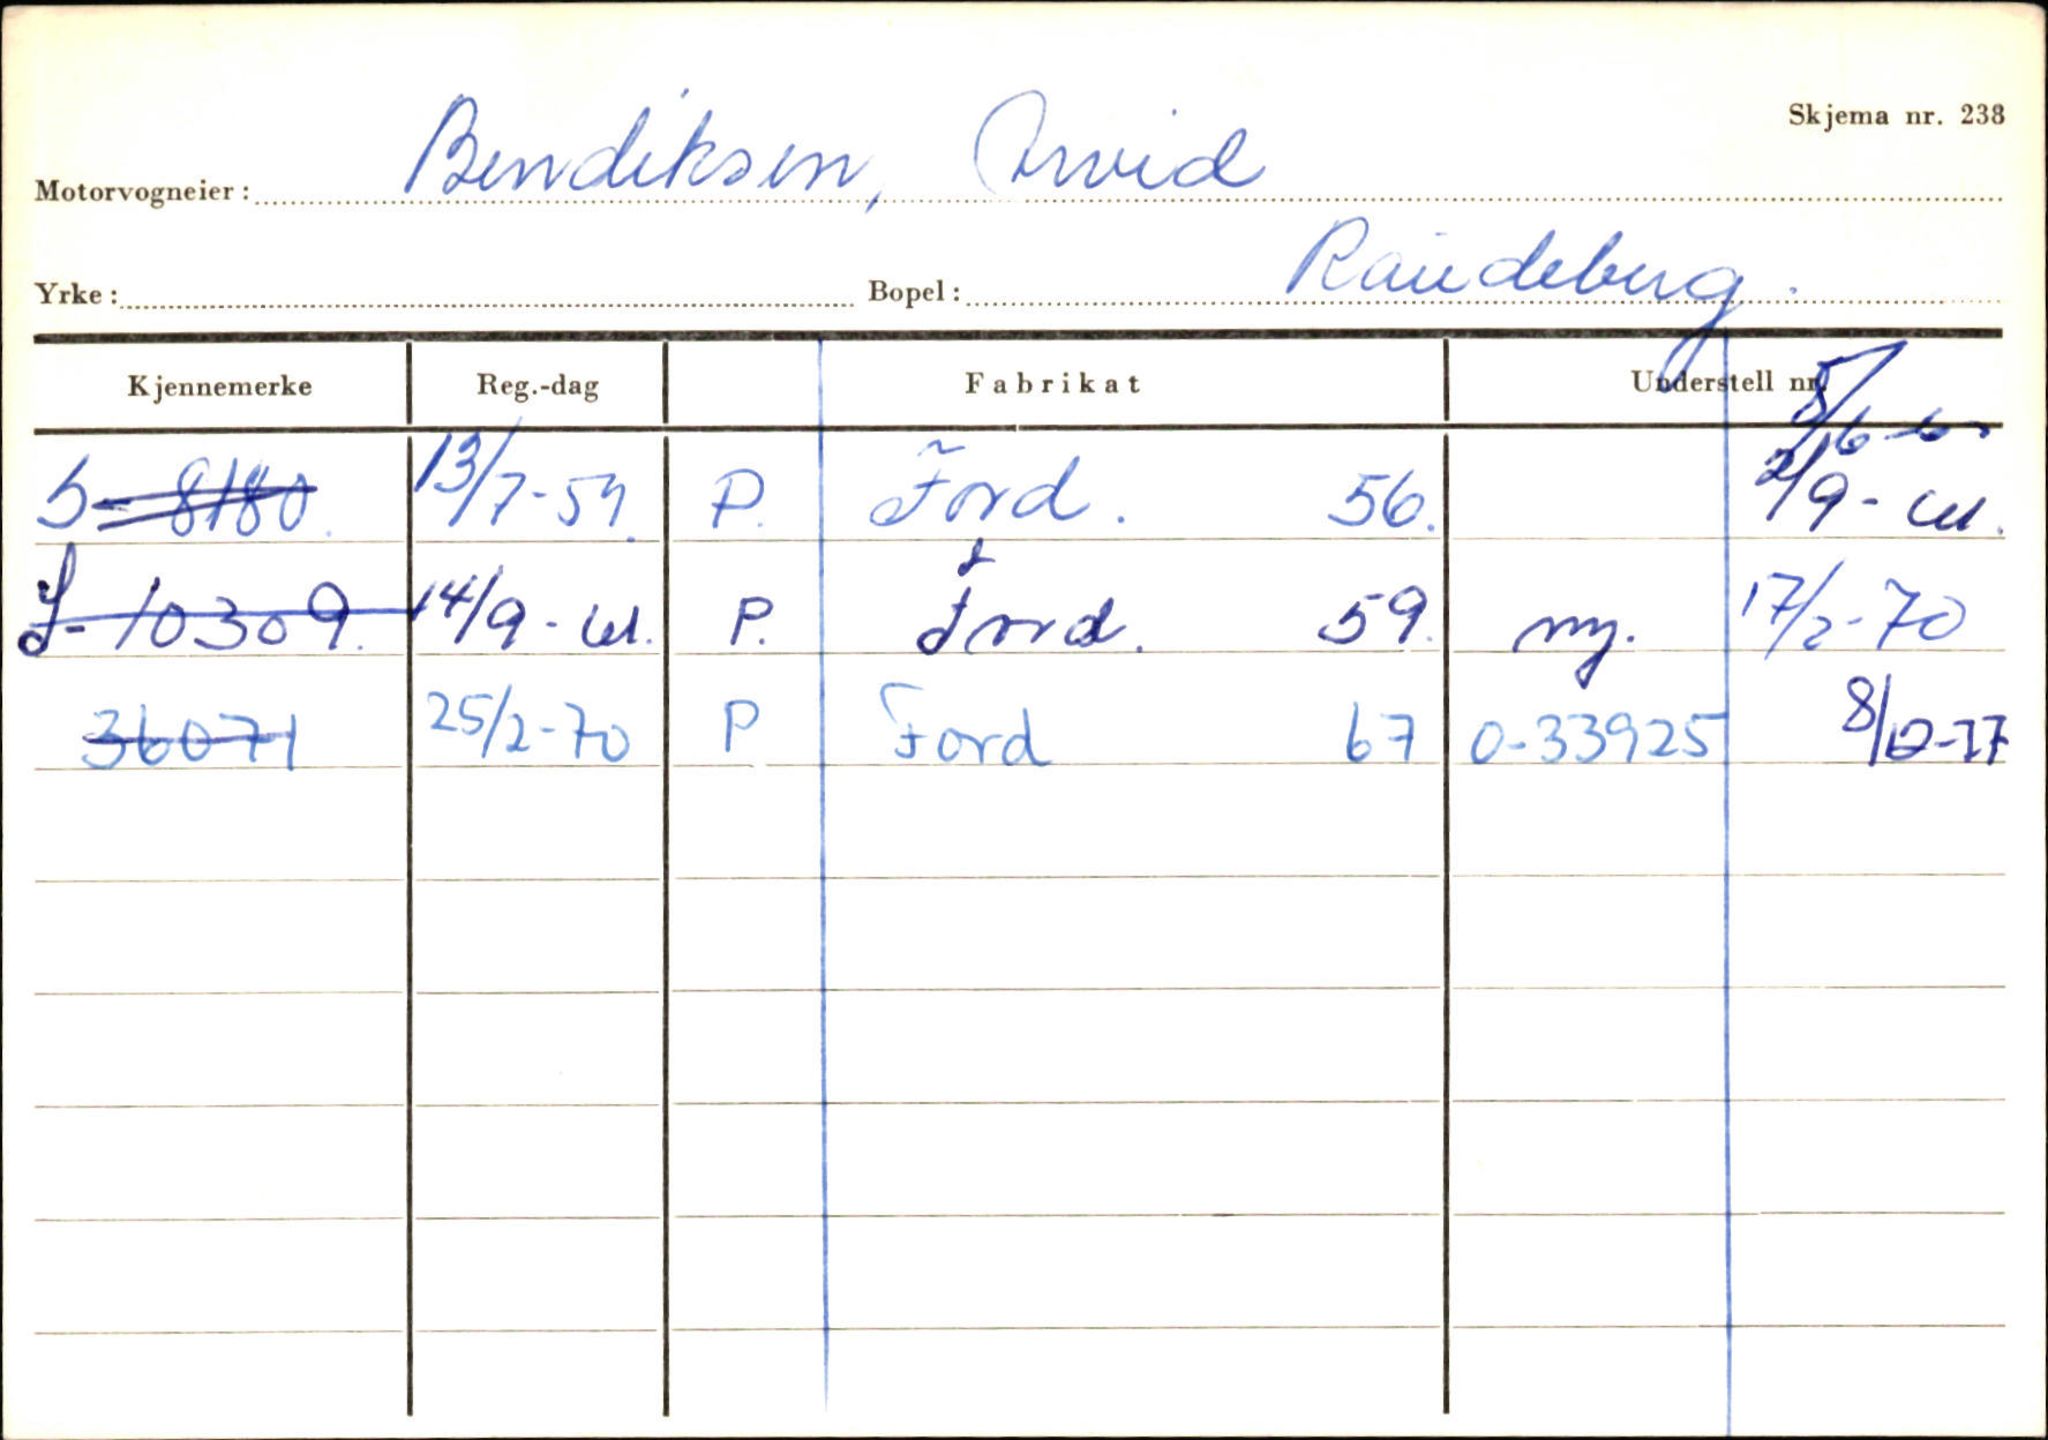 Skjema nr. 238
Motorvogneier: Bendiksen, Arvid
Yrke: Bopel: Raudeberg.
Kjennemerke Reg.-dag Fabrikat Understell nr.
S-8180. 13/7-59. P. Ford. 56. 2/9-61.
S-10309. 14/9-61. P. Ford. 59. ny. 17/2-70
36071 25/2-70 P Ford 67 0-33925 8/12-77